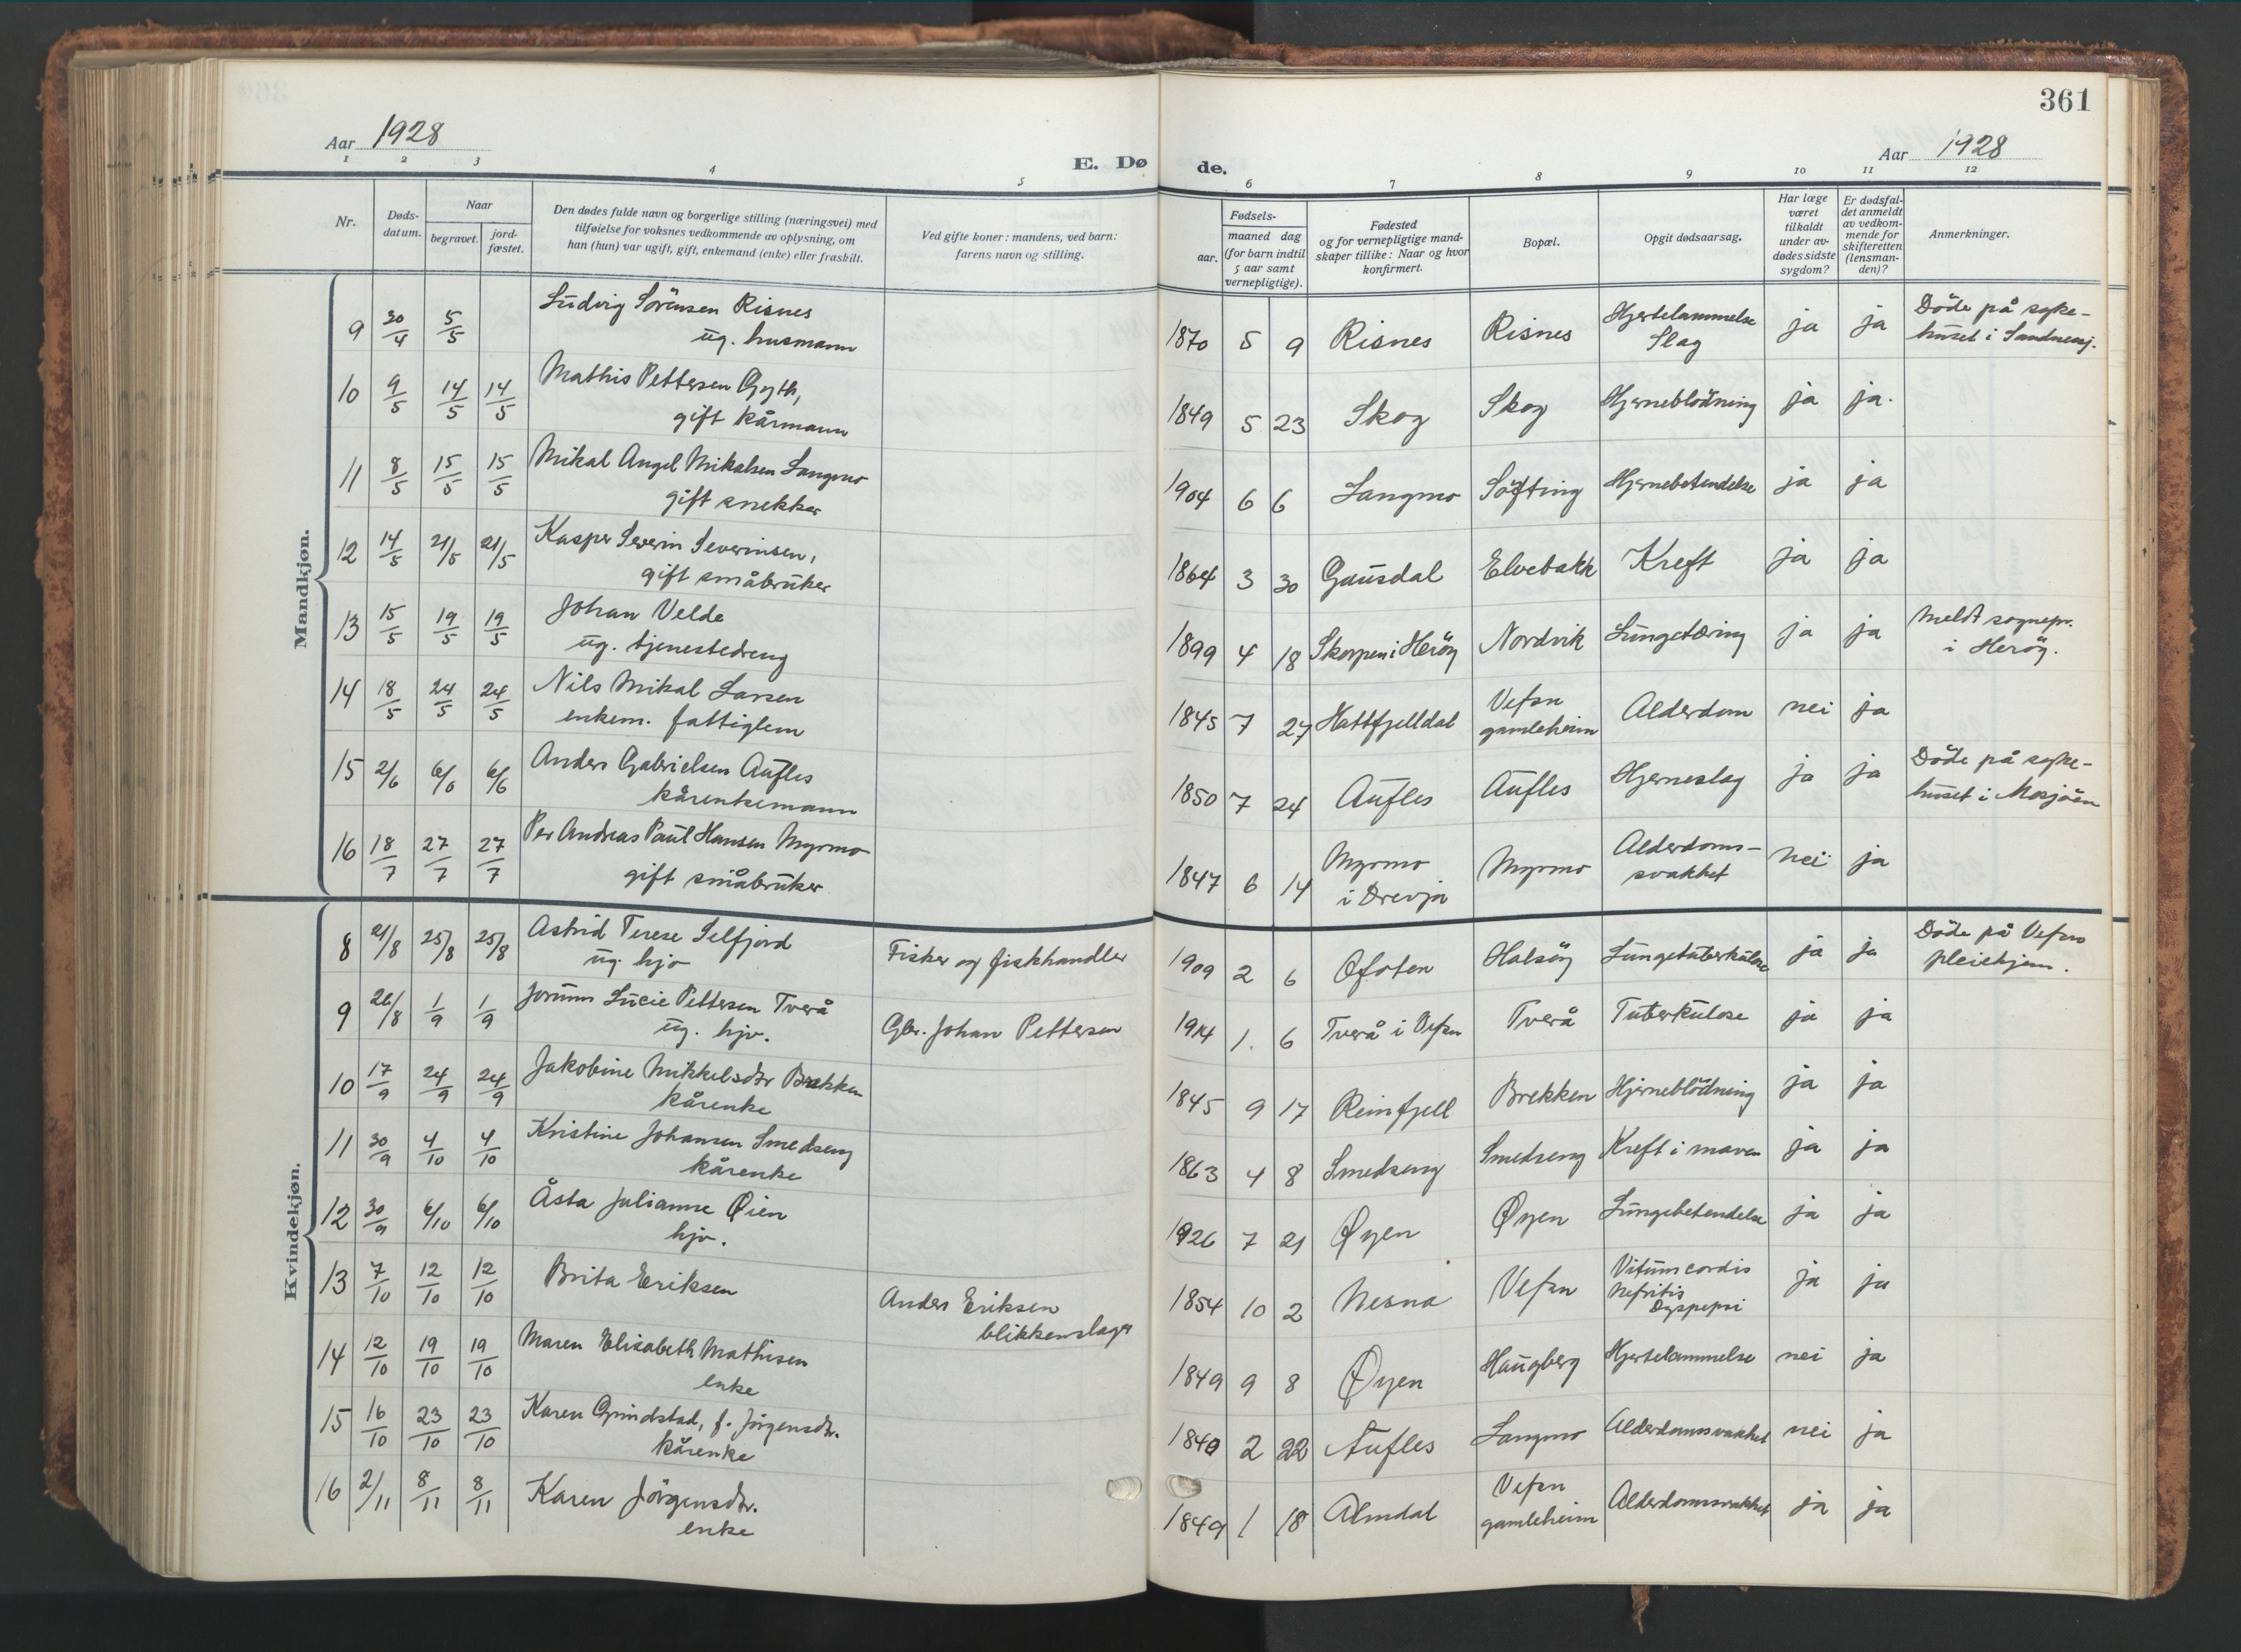 361
Aar 1928
Aar 1928
1 2 3 4 5 6 7 8 9 10 11 12
E. Dø de.
Nr.
Døds-
datum.
Naar
begravet.
jord-
fæstet.
Den dødes fulde navn og borgerlige stilling (næringsvei) med
tilføielse for voksnes vedkommende av oplysning, om
han (hun) var ugift, gift, enkemand (enke) eller fraskilt.
Ved gifte koner: mandens, ved barn:
farens navn og stilling.
Fødsels-
aar.
maaned dag
(for barn indtil
5 aar samt
vernepligtige).
Fødested
og for vernepligtige mand-
skaper tillike: Naar og hvor
konfirmert.
Bopæl.
Opgit dødsaarsag.
Har læge
været
tilkaldt
under av-
dødes sidste
sygdom?
Er dødsfal-
det anmeldt
av vedkom-
mende for
skifteretten
(lensman-
den)?
Anmerkninger.
Mandkjøn.
9 30/4 5/5 Ludvig Sörensen Risnes
ug. husmann
1870 5 9 Risnes Risnes Hjertelammelse
Slag
ja ja Döde på syke-
huset i Sandnessj.
10 9/5 14/5 14/5 Mathis Pettersen Gyth,
gift kårmann
1849 5 23 Skog Skog Hjerneblödning ja ja.
11 8/5 15/5 15/5 Mikal Angel Mikalsen Langmo
gift snekker
1904 6 6 Langmo Söfting Hjernebetendelse ja ja
12 14/5 21/5 21/5 Kasper Severin Severinsen,
gift småbruker
1864 3 30 Gausdal Elvebakk Kreft ja ja
13 15/5 19/5 19/5 Johan Velde
ug. tjenestedreng
1899 4 18 Skorpen i Heröy Nordvik Lungetæring ja ja Meldt sognepr.
i Heröy.
14 18/5 24/5 24/5 Nils Mikal Larsen
enkem. fattiglem
1845 7 27 Hattfjelldal Vefsn
gamleheim
Alderdom nei ja
15 2/6 6/6 6/6 Anders Gabrielsen Aufles
kårenkemann
1850 7 24 Aufles Aufles Hjerneslag ja ja Döde på syke-
huset i Mosjöen
16 18/7 27/7 27/7 Per Andreas Paul Hansen Myrmo
gift småbruker
1847 6 14 Myrmo
i Drevja
Myrmo Alderdoms-
svakhet
nei ja
Kvindekjøn.
8 21/8 25/8 25/8 Astrid Terese Selfjord
ug. hjv
Fisker og fiskhandler 1909 2 6 Ofoten Halsöy Lungetuberkulose ja ja Döde på Vefsn
pleiehjem.
9 26/8 1/9 1/9 Jorunn Lucie Pettersen Tverå
ug. hjv.
Gbr. Johan Pettersen 1914 1. 6 Tverå i Vefsn Tverå Tuberkulose ja ja
10 17/9 24/9 24/9 Jakobine Mikkelsdtr Brekken
kårenke
1845 9 17 Reinfjell Brekken Hjerneblödning ja ja
11 30/9 4/10 4/10 Kristine Johansen Smedseng
kårenke
1863 4 8 Smedseng Smedseng Kreft i maven ja ja
12 30/9 6/10 6/10 Åsta Julianne Øien
hjv.
1926 7 21 Øyen Øyen Lungebetendelse ja ja
13 7/10 12/10 12/10 Brita Eriksen
Anders Eriksen
blikkenslager
1854 10 2 Nesna Vefsn Vitum cordis
Nefritis
Dyspepsi
ja ja
14 12/10 19/10 19/10 Maren Elisabeth Mathisen
enke
1849 9 8 Øyen Haugberg Hjertelammelse nei ja
15 16/10 23/10 23/10 Karen Grindstad, f. Jörgensdtr.
kårenke
1840 2 22 Aufles Langmo Alderdomssvakhet nei ja
16 2/11 8/11 8/11 Karen Jörgensdtr.
enke
1849 1 18 Almdal Vefsn
gamleheim
Alderdomssvakhet ja ja